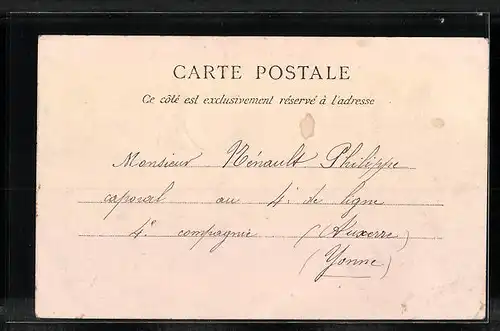 CARTE POSTALE
Ce côté est exclusivement réservé à l'adresse
Monsieur Hénault Philippe
caporal au 4e de ligne
4e compagnie (Auxerre)
(Yonne)